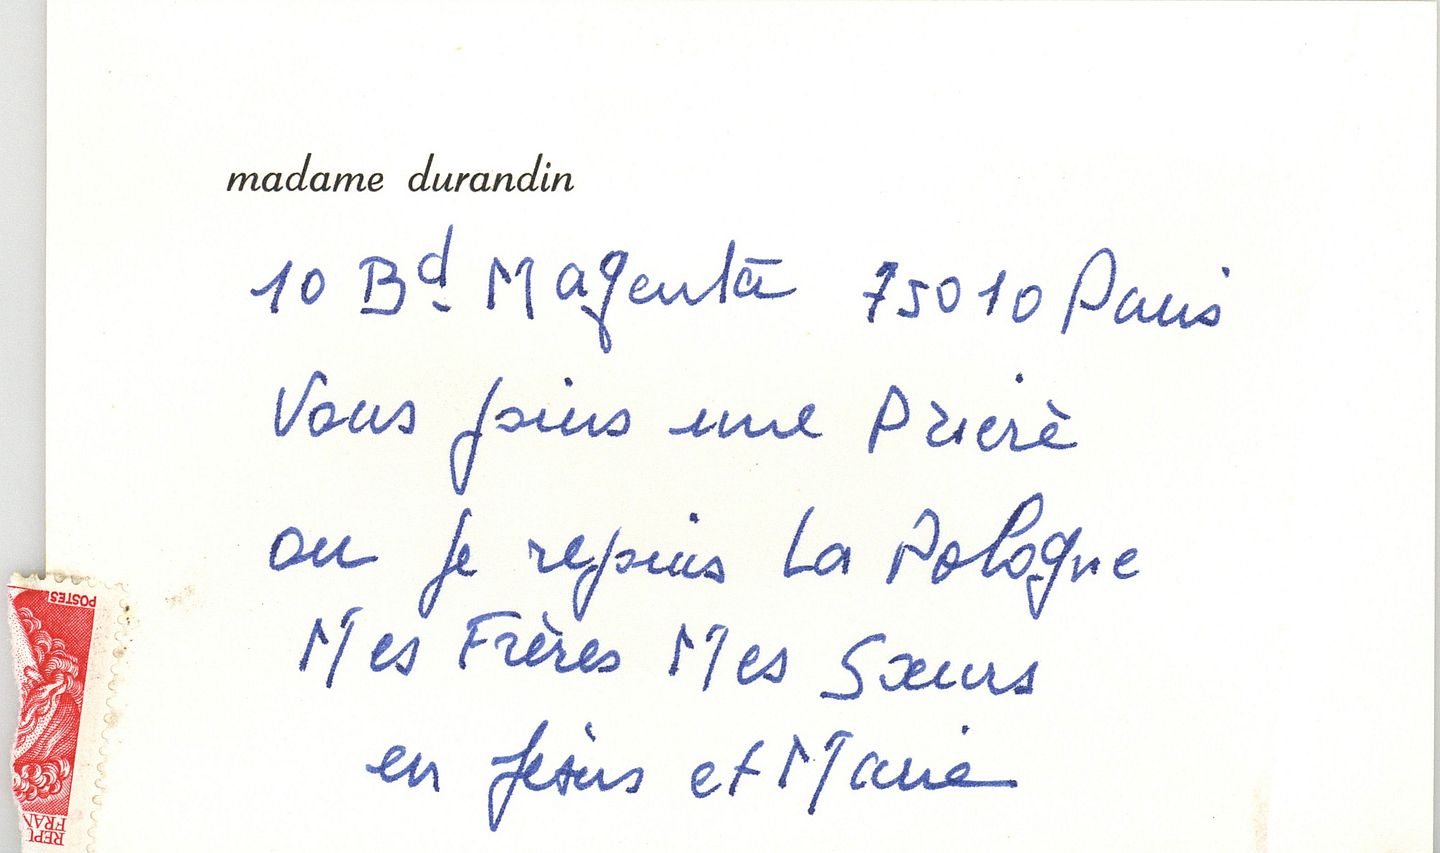 madame durandin
10 Bd Magenta 75010 Paris
Vous joins une Prière
ou je rejoins La Pologne
Mes Frères Mes Sœurs
en Jésus et Marie
POSTES
REPU
FRAN